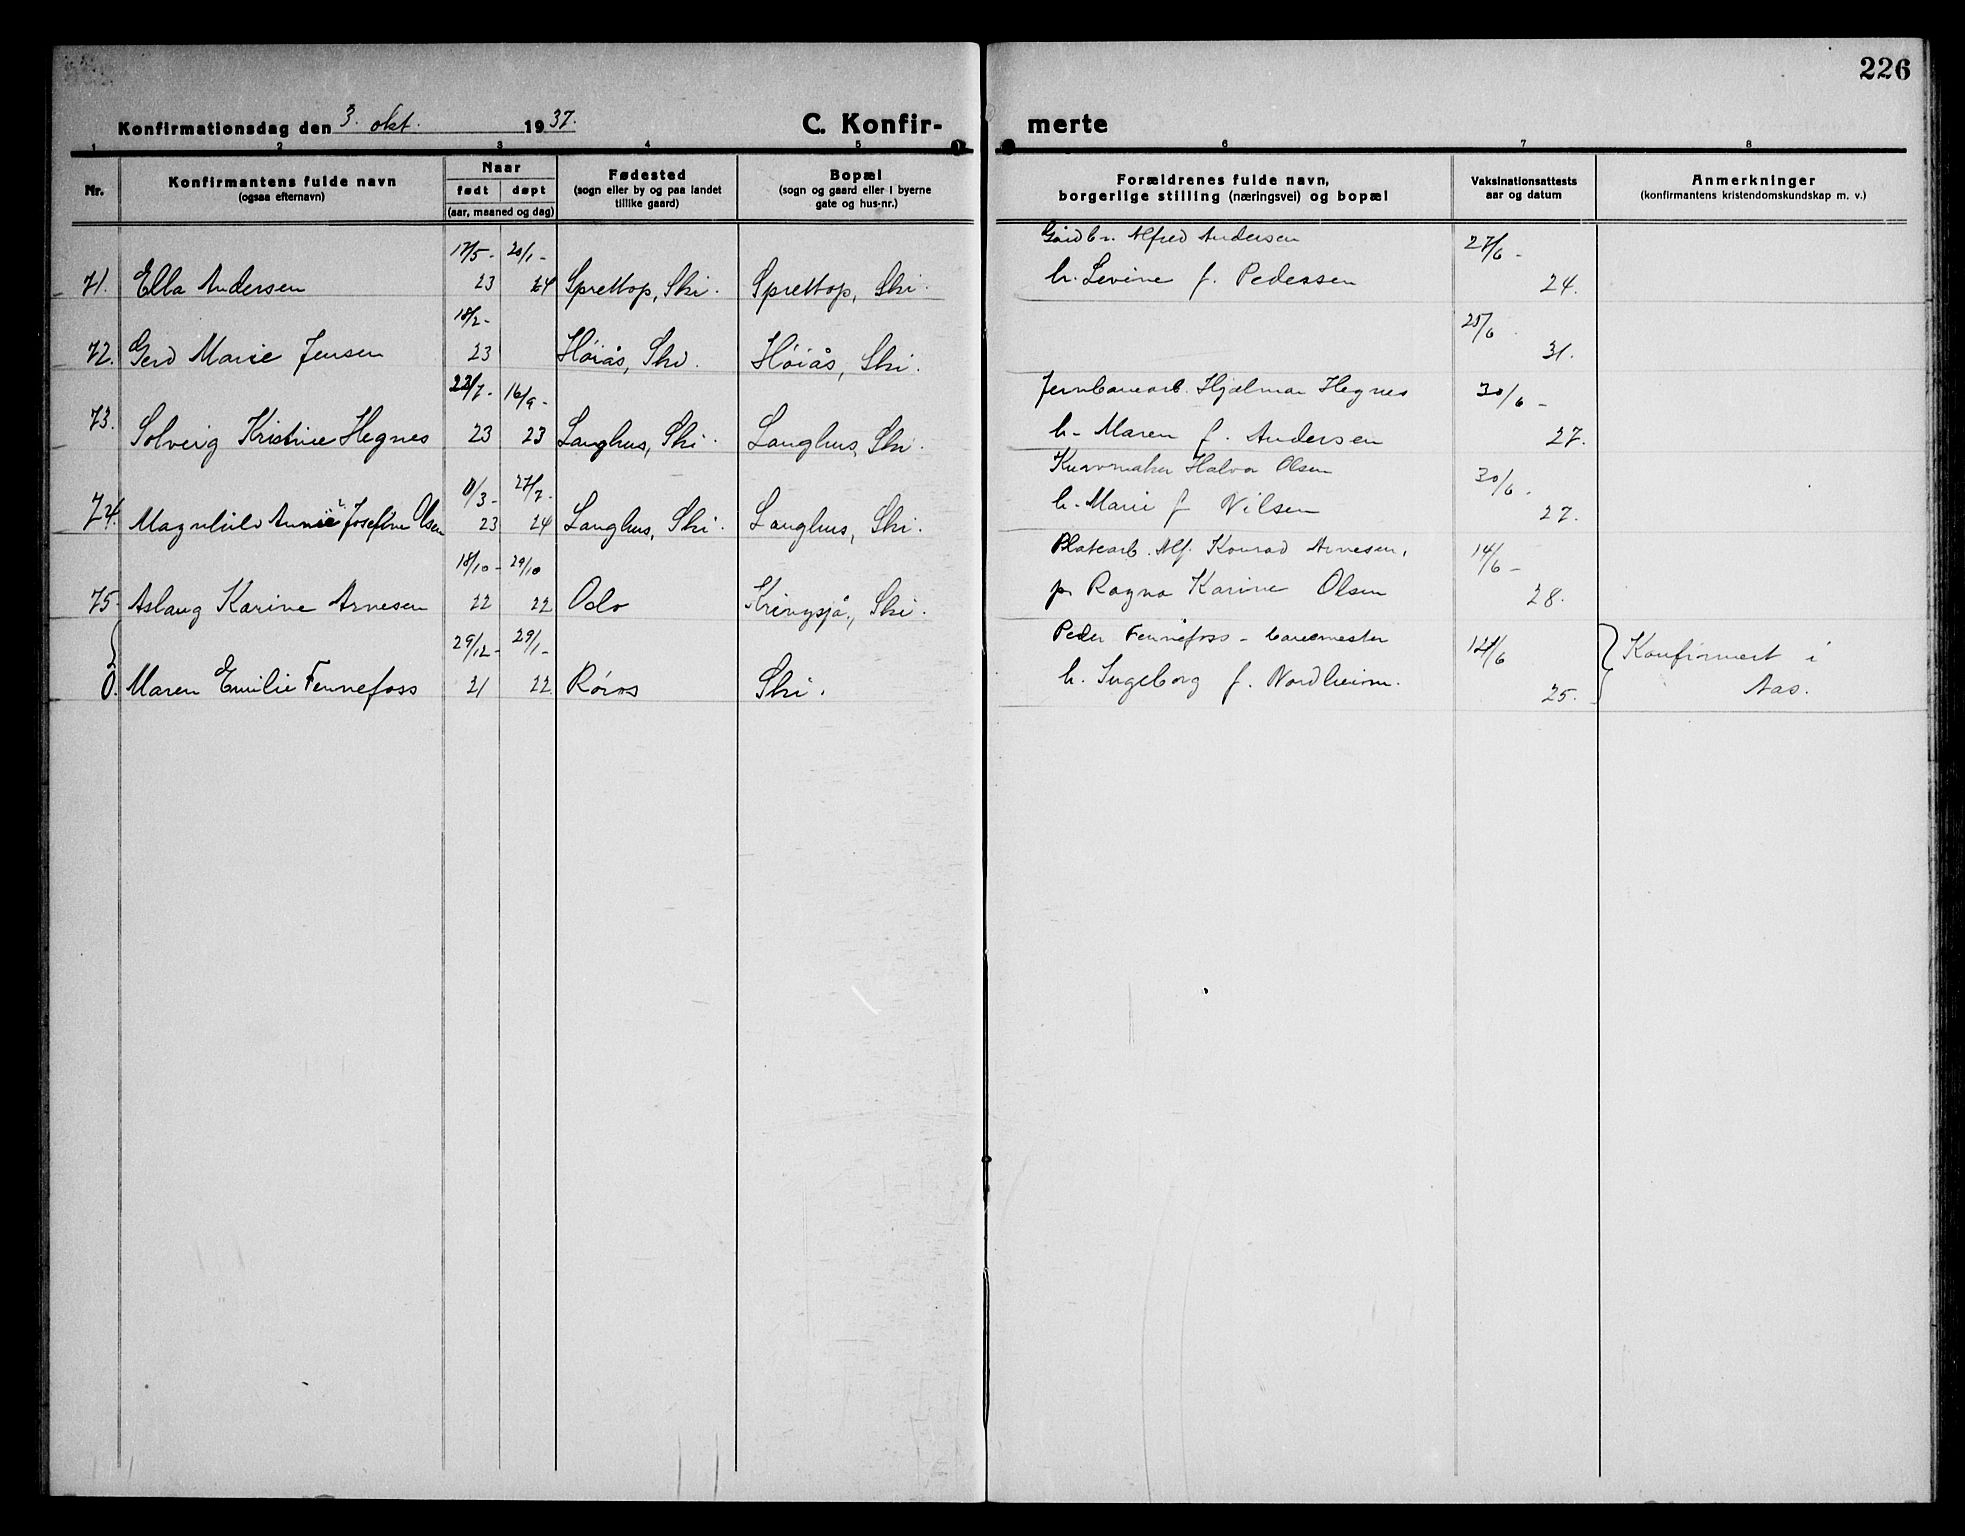 226
Konfirmationsdag den 3. okt. 1937.
C. Konfirmerte
1 2 3 4 5 6 7 8
Nr.
Konfirmantens fulde navn
(ogsaa efternavn)
Naar
født døpt
(aar, maaned og dag)
Fødested
(sogn eller by og paa landet
tillike gaard)
Bopæl
(sogn og gaard eller i byerne
gate og hus-nr.)
Forældrenes fulde navn,
borgerlige stilling (næringsvei) og bopæl
Vaksinationsattests
aar og datum
Anmerkninger
(konfirmantens kristendomskundskap m. v.)
17/5- 20/1- Gårdbr. Alfred Andersen 27/6 -
71. Ella Andersen 23 24 Sprettop, Ski. Sprettop, Ski. h. Levine f. Pedersen 24.
18/2- 25/6.
72. Gerd Marie Jensen 23 Høiås, Ski. Høiås, Ski. 31.
22/7- 16/9- Jernbanearb. Hjalmar Hegnes 30/6 -
73. Solveig Kristine Hegnes 23 23 Langhus, Ski. Langhus, Ski. h. Maren f. Andersen 27.
/3- 27/7- Kurvmaker Halvor Olsen 30/6 -
74. Magnhild Annie Josefine Olsen 23 24 Langhus, Ski. Langhus, Ski. h. Marie f. Nilsen 27.
18/10- 29/10 Platearb. Alf. Konrad Arnesen, 14/6 -
75. Aslaug Karine Arnesen 22 22 Oslo Kringsjå, Ski. p. Ragna Karine Olsen 28.
29/12- 29/1- Peder Fennefoss - banemester 14/6 Konfirmert i
0. Maren Emilie Fennefoss 21 22 Røros Ski. h. Ingeborg f. Nordheim. 25. Aas.